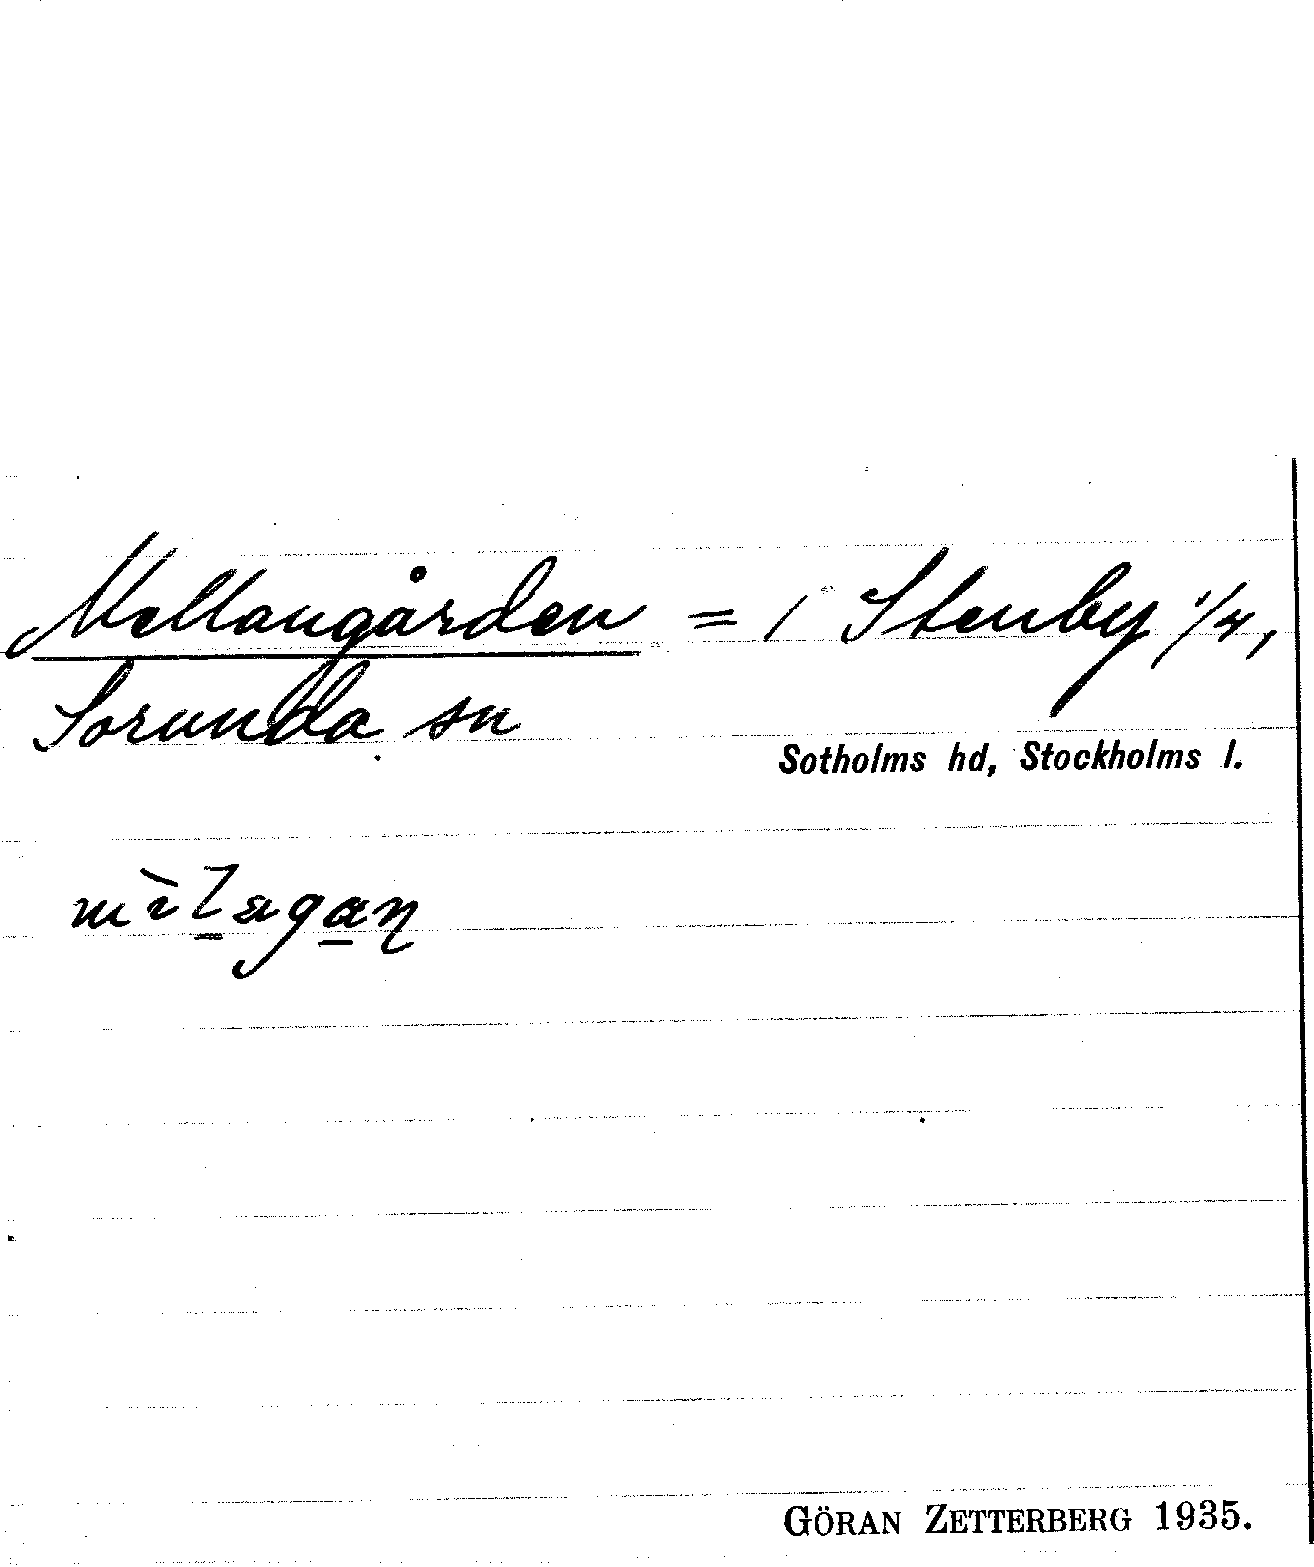 Mellangården = / Stenby 1/4,
Sorunda sn
Sotholms hd, Stockholms l.
GÖRAN ZETTERBERG 1935.